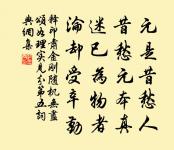 元是昔愁人
昔愁元本真
迷已為物者
淪却受辛勤
釋印肅金剛隨机無盡
頌如理實見分第五詞
典網集